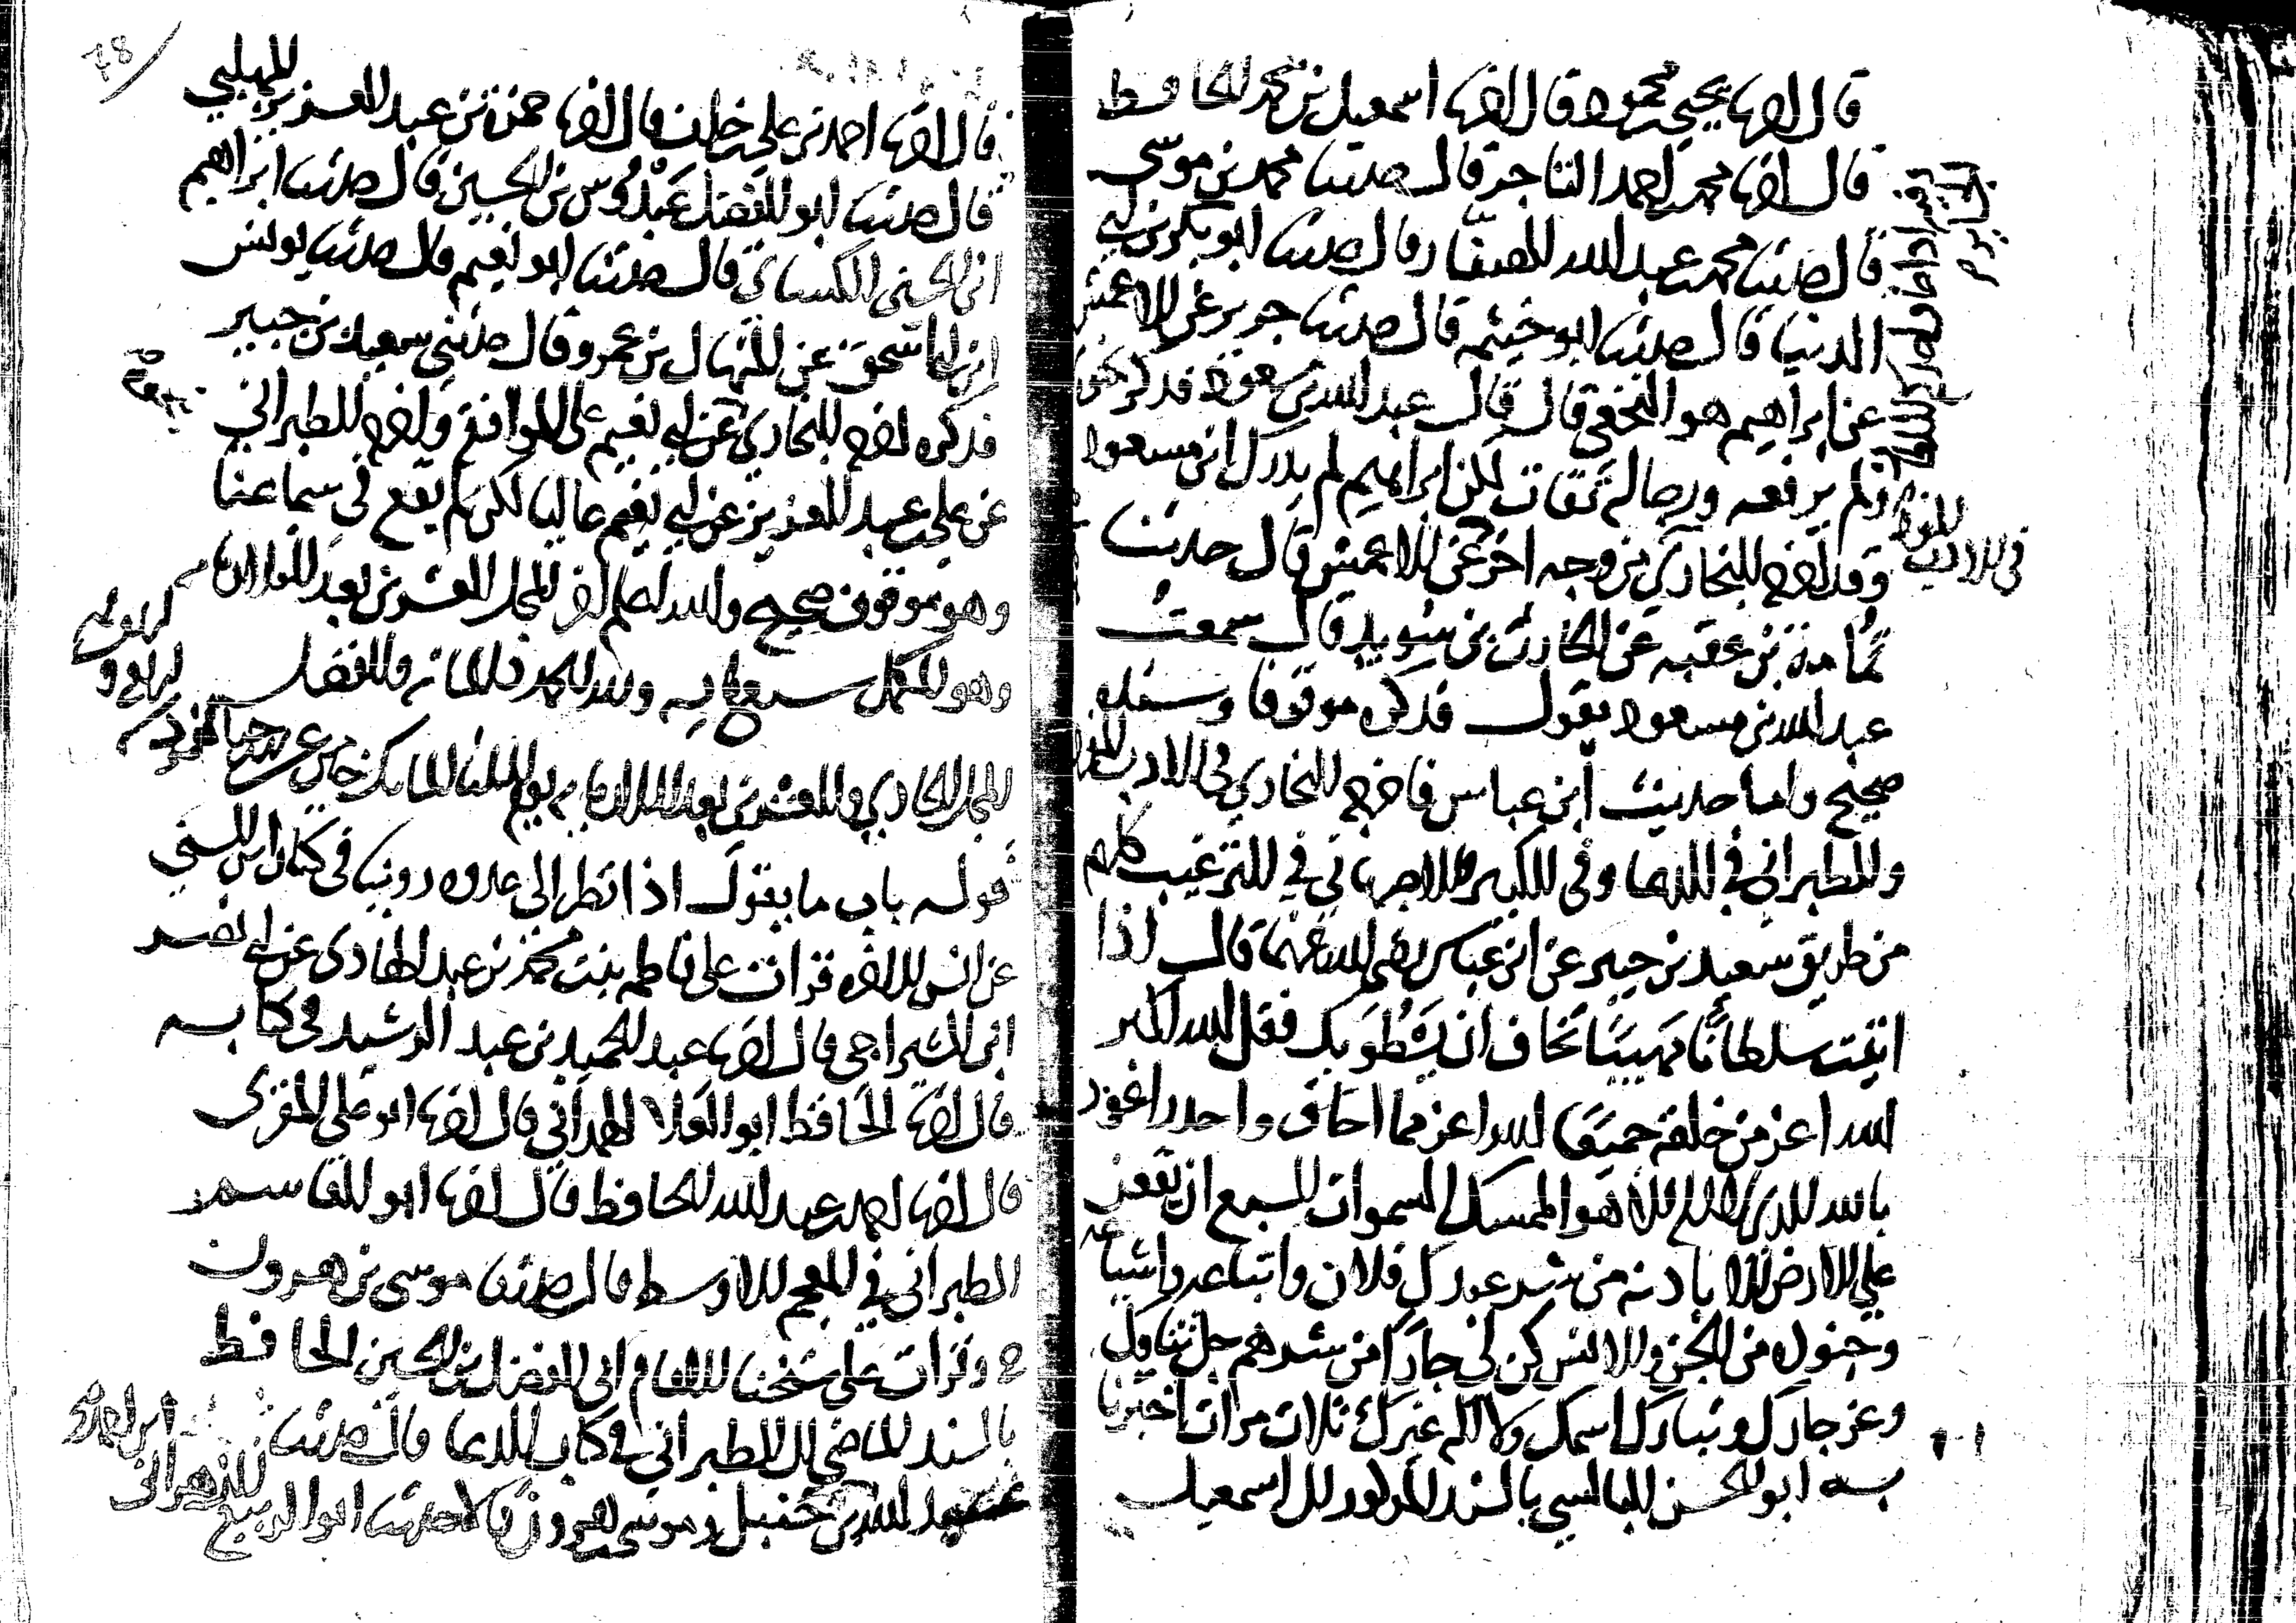 قال انا يحيى بن محمود قال انا اسمعيل بن محمد الحافظ
قال انا محمد بن احمد التاجر قال حدثنا محمد بن موسى
قال حدثنا محمد بن عبد الله الصفار قال حدثنا ابو بكر بن ابي
الدنيا قال حدثنا ابو خيثمه قال حدثنا جرير عن الاعمش
عن ابراهيم هو النخعي قال قال عبد الله بن مسعود فذكر
ولم يرفعه ورجاله ثقات لكن ابراهيم لم يدرك ابن مسعود
وقد اخرجه البخاري من وجه اخر عن الاعمش قال حدثنا
ثمامة بن عقبه عن الحارث بن سويد قال سمعت
عبد الله بن مسعود يقول فذكره موقوفا وسنده
صحيح واما حديث ابن عباس فاخرجه البخاري في الادب المفرد
والطبراني في الدعا وفي الكبير والاصبهاني في الترغيب كلهم
من طريق سعيد بن جبير عن ابن عباس رضي الله عنهما قال اذا
اتيت سلطانا مهيبا تخاف ان يسطو بك فقل الله اكبر
الله اعز من خلقه جميعا الله اعز مما اخاف واحذر اعوذ
بالله الذي لا اله الا هو الممسك السموات السبع ان يقعن
على الارض الا باذنه من شر عبدك فلان واتباعه واشياعه
وجنوده من الجن والانس كن لي جارا من شرهم جل ثناوك
وعز جارك وتبارك اسمك ولا اله غيرك ثلاث مرات اخبرنا
به ابو الحسن البالسي بالسند المذكور الى اسمعيل
في الادب المفرد
78
قال انا احمد بن علي بن خلف قال انا حمزة بن عبد العزيز المهلبي
قال حدثنا ابو الفضل عبدوس بن الحسين قال حدثنا ابراهيم
ابن الحسين الكسائي قال حدثنا ابو نعيم قال حدثنا يونس
ابن ابي اسحق عن المنهال بن عمرو قال حدثني سعيد بن جبير
فذكره اخرجه البخاري عن ابي نعيم على الموافقة واخرجه الطبراني
عن علي بن عبد العزيز عن ابي نعيم عاليا لكن لم يقع في سماعنا
وهو موقوف صحيح والله اعلم اخر المجلس العشرين بعد
وهو المكمل ولله الحمد والفضل
المجلس الحادي والعشرين بعد
قوله باب ما يقول اذا نظر الى عدوه روينا في كتاب ابن السني
عن انس الى اخره قرات على فاطمه بنت محمد بن عبد الهادي عن ابي نصر
ابن الشيرازي قال انا عبد الحميد بن عبد الرشيد في كتابه
قال انا الحافظ ابو العلا الهمداني قال انا ابو علي المقرى
قال انا احمد بن عبد الله الحافظ قال انا ابو القاسم
الطبراني في المعجم الاوسط قال حدثنا موسى بن هرون
ح وقرات على شيخنا الامام ابي الفضل بن الحسين الحافظ
بالسند الماضي الى الطبراني في كتاب الدعا قال حدثنا
عبد الله بن احمد بن حنبل وموسى بن هرون قالا حدثنا ابو الربيع
الزهراني